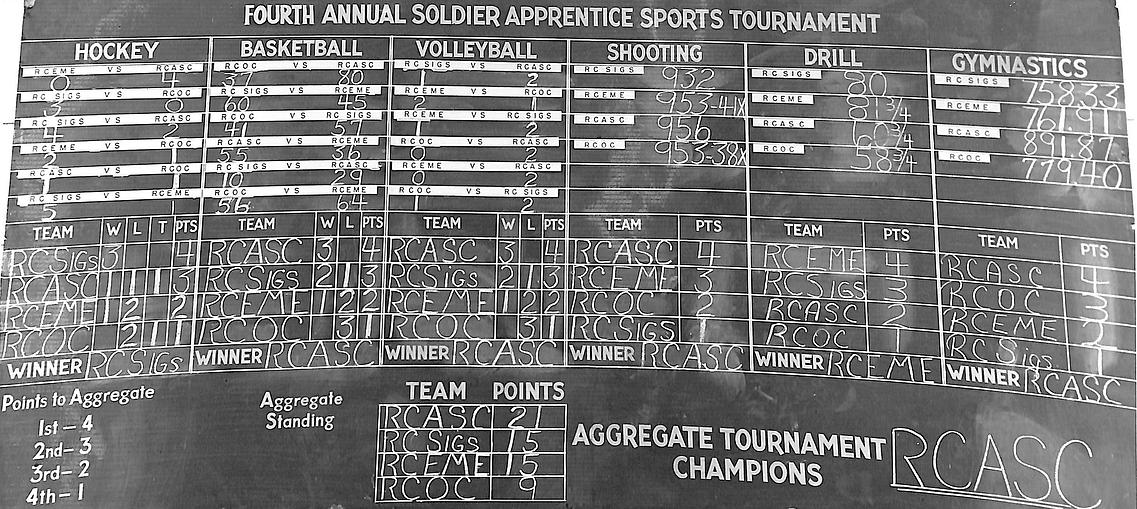 FOURTH ANNUAL SOLDIER APPRENTICE SPORTS TOURNAMENT
HOCKEY
RCEME VS RCASC
0 4
RC SIGS VS RCOC
3 0
RC SIGS VS RCASC
4 2
RCEME VS RCOC
2 1
RCASC VS RCOC
1
RC SIGS VS RCEME
5
TEAM W L T PTS
RCSIGS 3 4
RCASC 1 1 1 3
RCEME 1 2 2
RCOC 2 1 1
WINNER RCSIGS
BASKETBALL
RCOC VS RCASC
37 80
RC SIGS VS RCEME
60 45
RCOC VS RC SIGS
41 57
RCASC VS RCEME
55 36
RC SIGS VS RCASC
10 29
RCOC VS RCEME
56 64
TEAM W L PTS
RCASC 3 4
RCSIGS 2 1 3
RCEME 1 2 2
RCOC 3 1
WINNER RCASC
VOLLEYBALL
RC SIGS VS RCASC
1 2
RCEME VS RCOC
2 1
RCEME VS RC SIGS
1 2
RCOC VS RCASC
0 2
RCEME VS RCASC
0 2
RCOC VS RC SIGS
1 2
TEAM W L PTS
RCASC 3 4
RCSIGS 2 1 3
RCEME 1 2 2
RCOC 3 1
WINNER RCASC
SHOOTING
RC SIGS 932
RCEME 953-41X
RCASC 956
RCOC 953-38X
TEAM PTS
RCASC 4
RCEME 3
RCOC 2
RCSIGS 1
WINNER RCASC
DRILL
RC SIGS 80
RCEME 81 3/4
RCASC 60 3/4
RCOC 58 3/4
TEAM PTS
RCEME 4
RCSIGS 3
RCASC 2
RCOC 1
WINNER RCEME
GYMNASTICS
RC SIGS 758.33
RCEME 761.91
RCASC 891.87
RCOC 779.40
TEAM PTS
RCASC 4
RCOC 3
RCEME 2
RCSIGS 1
WINNER RCASC
Points to Aggregate
1st – 4
2nd – 3
3rd – 2
4th – 1
Aggregate
Standing
TEAM POINTS
RCASC 21
RCSIGS 15
RCEME 15
RCOC 9
AGGREGATE TOURNAMENT
CHAMPIONS
RCASC